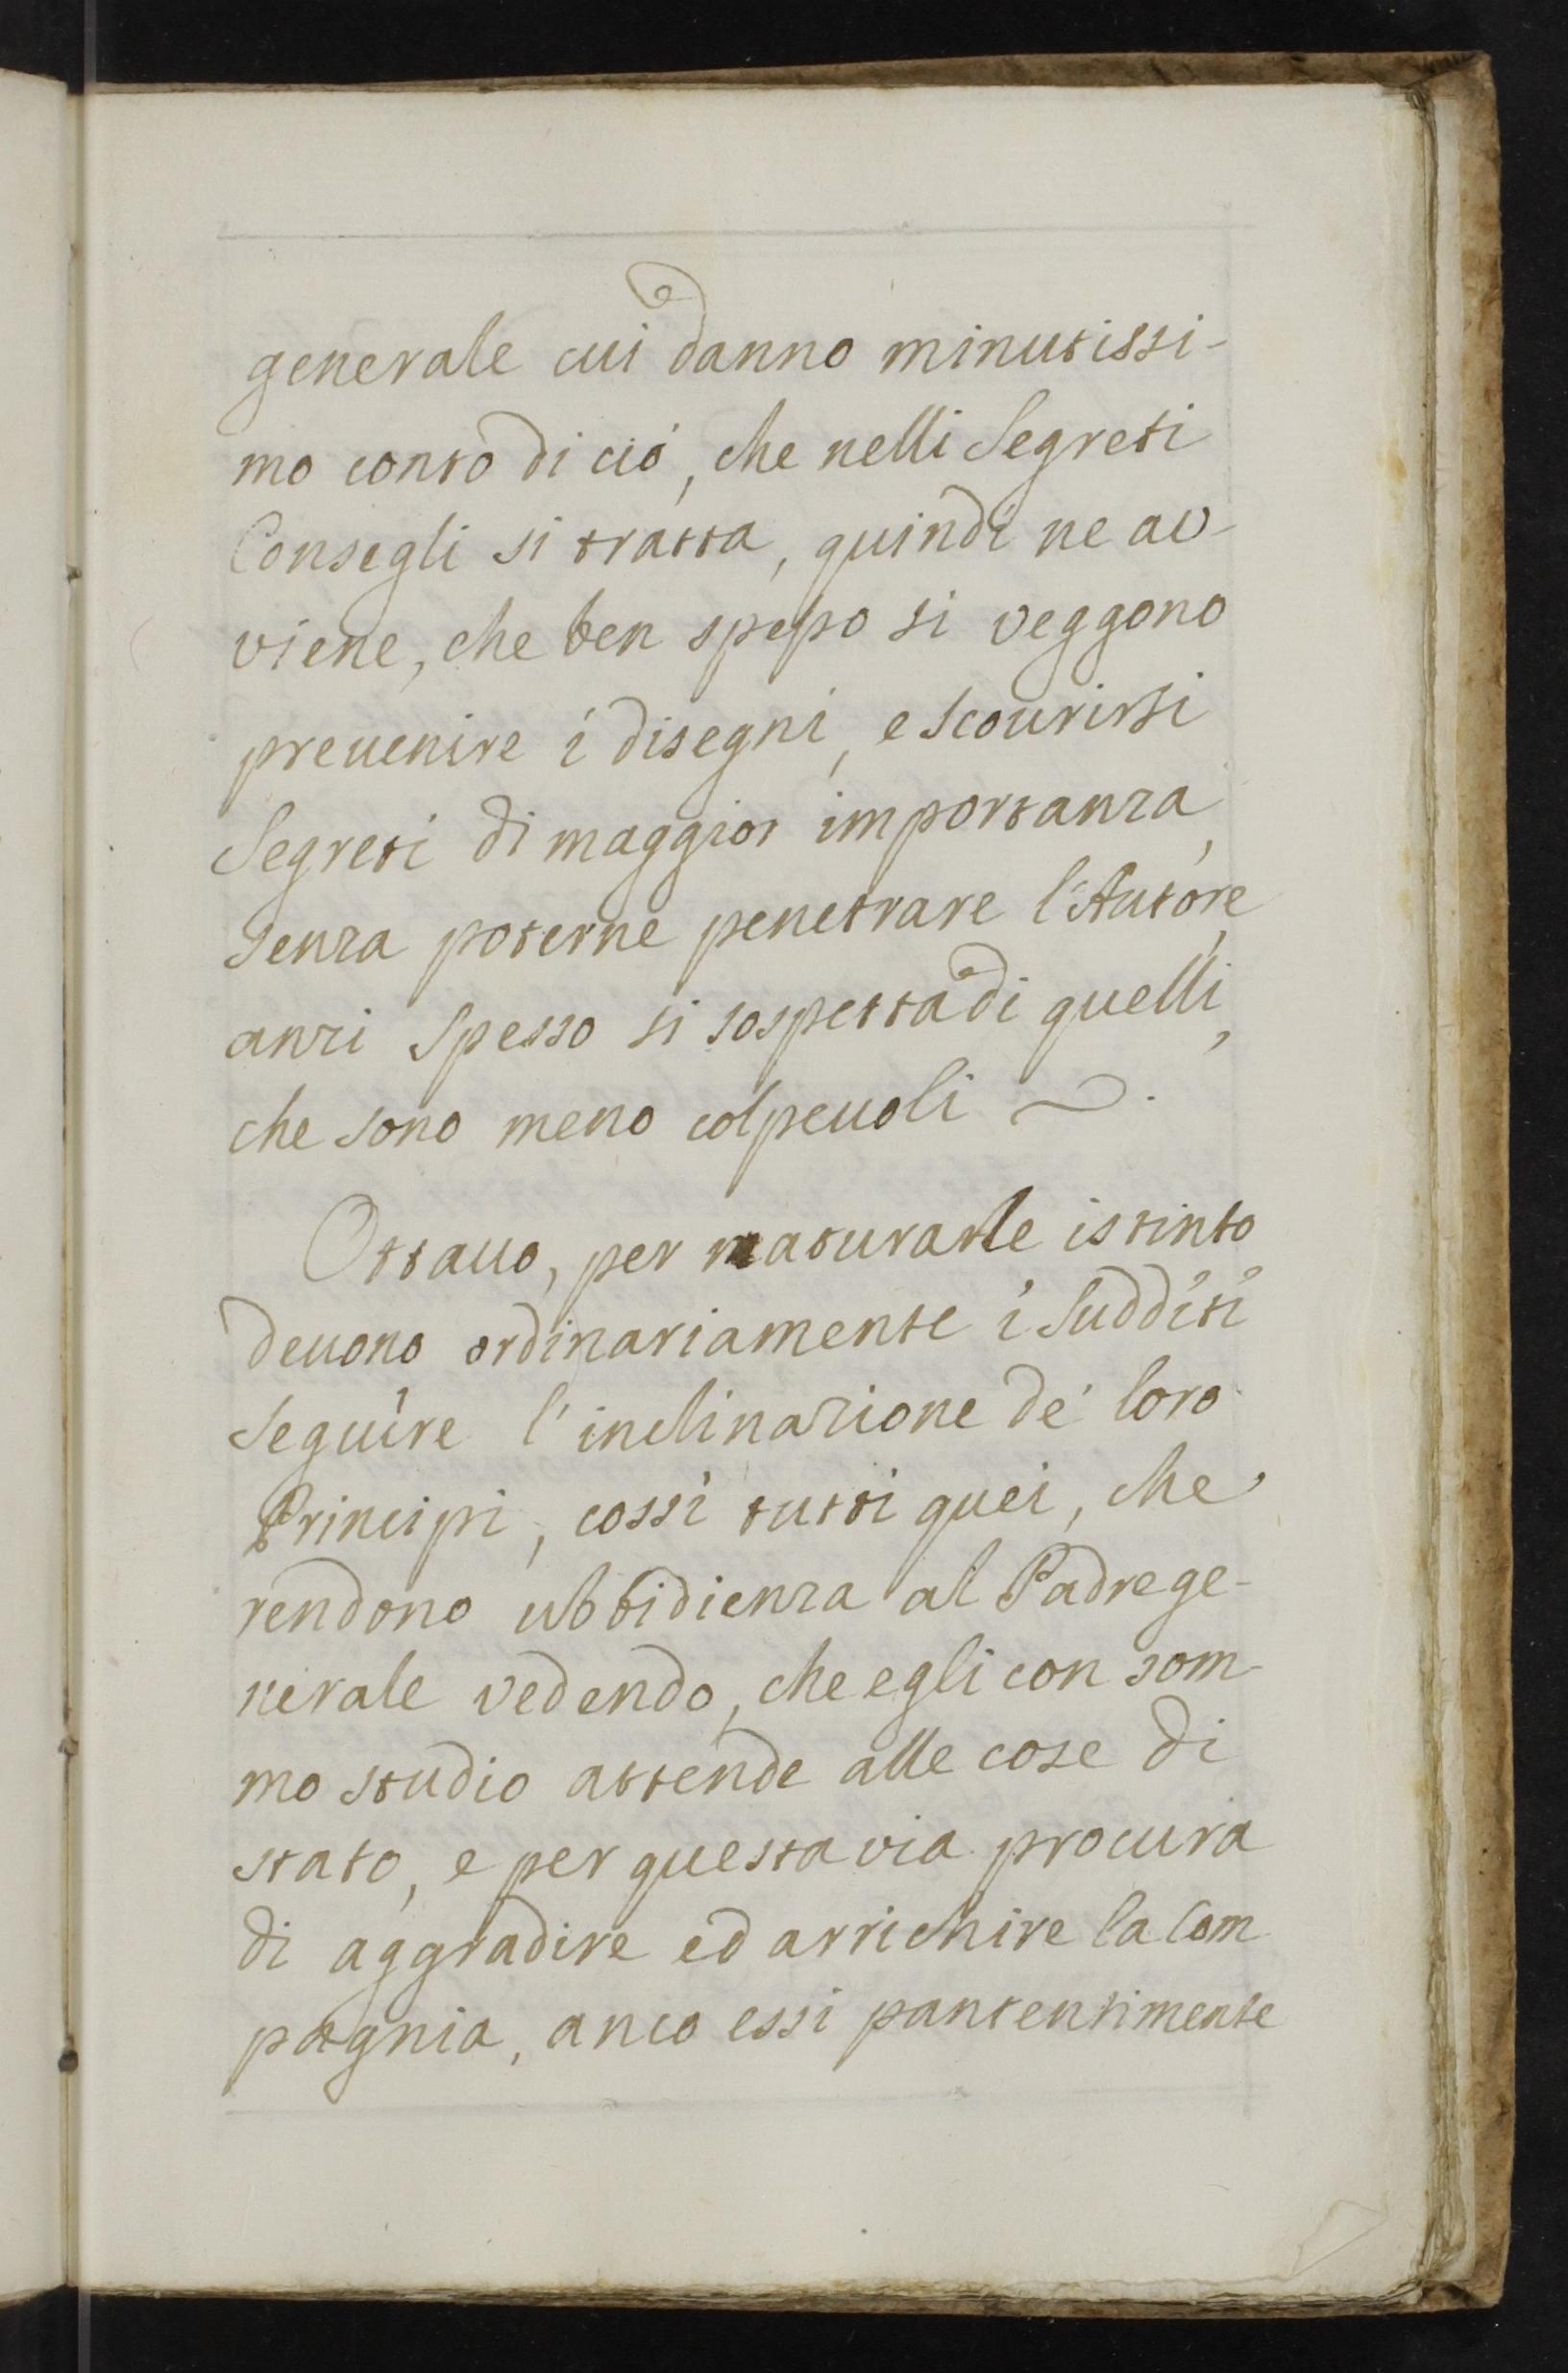 generale cui danno minutissi-
mo conto di ció, che nelli Segreti
Consegli si tratta, quindi ne av-
viene, che ben spesso si veggono
preuenire i disegni, e scourirsi
Segreti di maggior importanza,
senza poterne penetrare l'Autore,
anzi spesso si sospetta di quelli,
che sono meno colpeuoli ~.
Ottauo, per naturarle istinto
deuono ordinariamente i Sudditi
seguire l'inclinazione de' loro
Principi, cossi tutti quei, che
rendono ubbidienza al Padre ge-
nerale vedendo, che egli con som-
mo studio attende alle cose di
stato, e per questa via procura
di aggradire ed arrichire la Com
pagnia, anco essi pantentimente